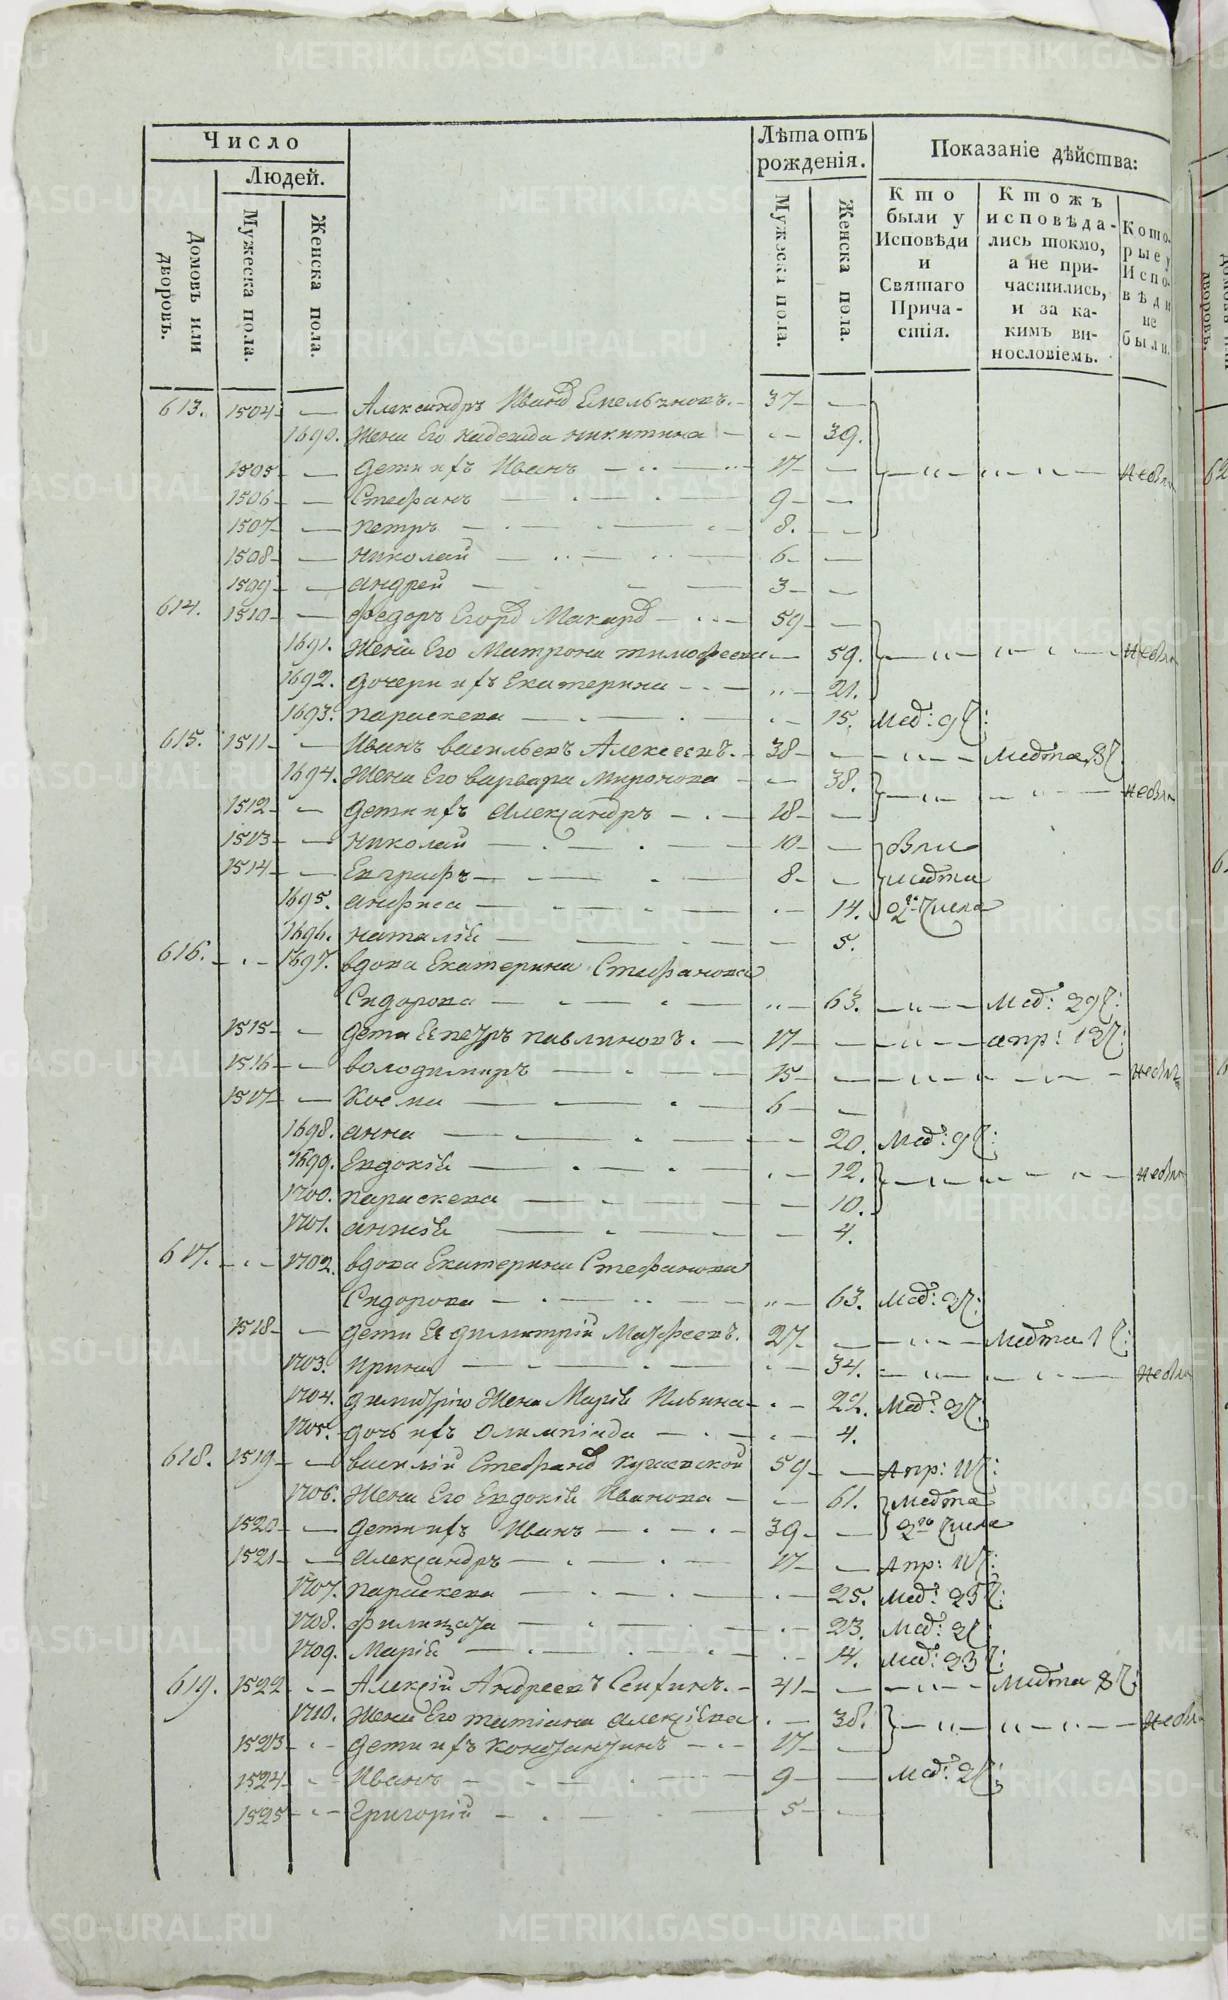 Число
Людей.
Домовъ или дворовъ.
Мужеска пола.
Женска пола.
Лѣта отъ рожденія.
Мужеска пола.
Женска пола.
Показаніе дѣйства:
Кто были у Исповѣди и Святаго Причастія.
Ктожъ исповѣдались токмо, а не причастились, и за какимъ винословіемъ.
Которые у Исповѣди не были.
613. 1504 — Александръ Иванд Емельяновъ. 37 —
1690. Жена Его Надежда никитина — 39.
1505 — дети ихъ Иванъ — 17 — небыл
1506 — Стефанъ — 9 —
1507 — петръ — 8. —
1508 — николай — 6 —
1509 — андрей — 3 —
614. 1510 — Федоръ Егорд Макард — 59 —
1691. Жена Его Матрона тимофеева — 59. небыл
1692. дочери ихъ Екатерина — 21.
1693. параскева — 15. Мад: 9 Ч:
615. 1511 — Иванъ васильевъ Алексеевъ. 38 — Мадта 8 Ч
1694. Жена Его варвара Миронова — 38. небыл
1512 — дети ихъ александръ — 18 —
1513 — николай — 10 — были
1514 — Евграфъ — 8 — мадта
1695. анфиса — 14. 2го Числа
1696. наталiя — 5.
616. 1697. вдова Екатерина Стефанова
Сидорова — 63. Мад: 29 Ч:
1515 — дети Ея петръ павлиновъ. 17 — апр: 12 Ч:
1516 — володимиръ — 15 — небыл
1517 — Косма — 6 —
1698. анна — 20. Мад: 9 Ч:
1699. Евдокiя — 12. небыл
1700. параскева — 10.
1701. анисiя — 4.
617. 1702. вдова Екатерина Стефанова
Сидорова — 63. Мад: 2 Ч:
1518 — дети Ея димитрiй Матфеевъ. 27. — Мадта 1 Ч:
1703. Ирина — 34. небыл
1704. димитрiю Жена Марiя Ильина — 22. Мад: 2 Ч.
1705. дочь ихъ олимпiада — 4.
618. 1519 — василiй Стефанд — 59 — Апр: 11 Ч:
1706. Жена Его Евдокiя Иванова — 61. Мадта
1520 — дети ихъ Иванъ — 39 — 2го Числа
1521 — александръ — 17 — Апр: 11 Ч:
1707. параскева — 25. Мад: 25 Ч:
1708. — 23. Мад: 2 Ч:
1709. Марiя — 14. Мад: 23 Ч:
619. 1522 — Алексiй Андреевъ — 41 — Мадта 8 Ч:
1710. Жена Его татiана алексiева — 38. небыл
1523 — дети ихъ Константинъ — 17 —
1524 — Иванъ — 9 — Мад: 2 Ч:
1525 — Григорiй — 5 —
METRIKI.GASO-URAL.RU